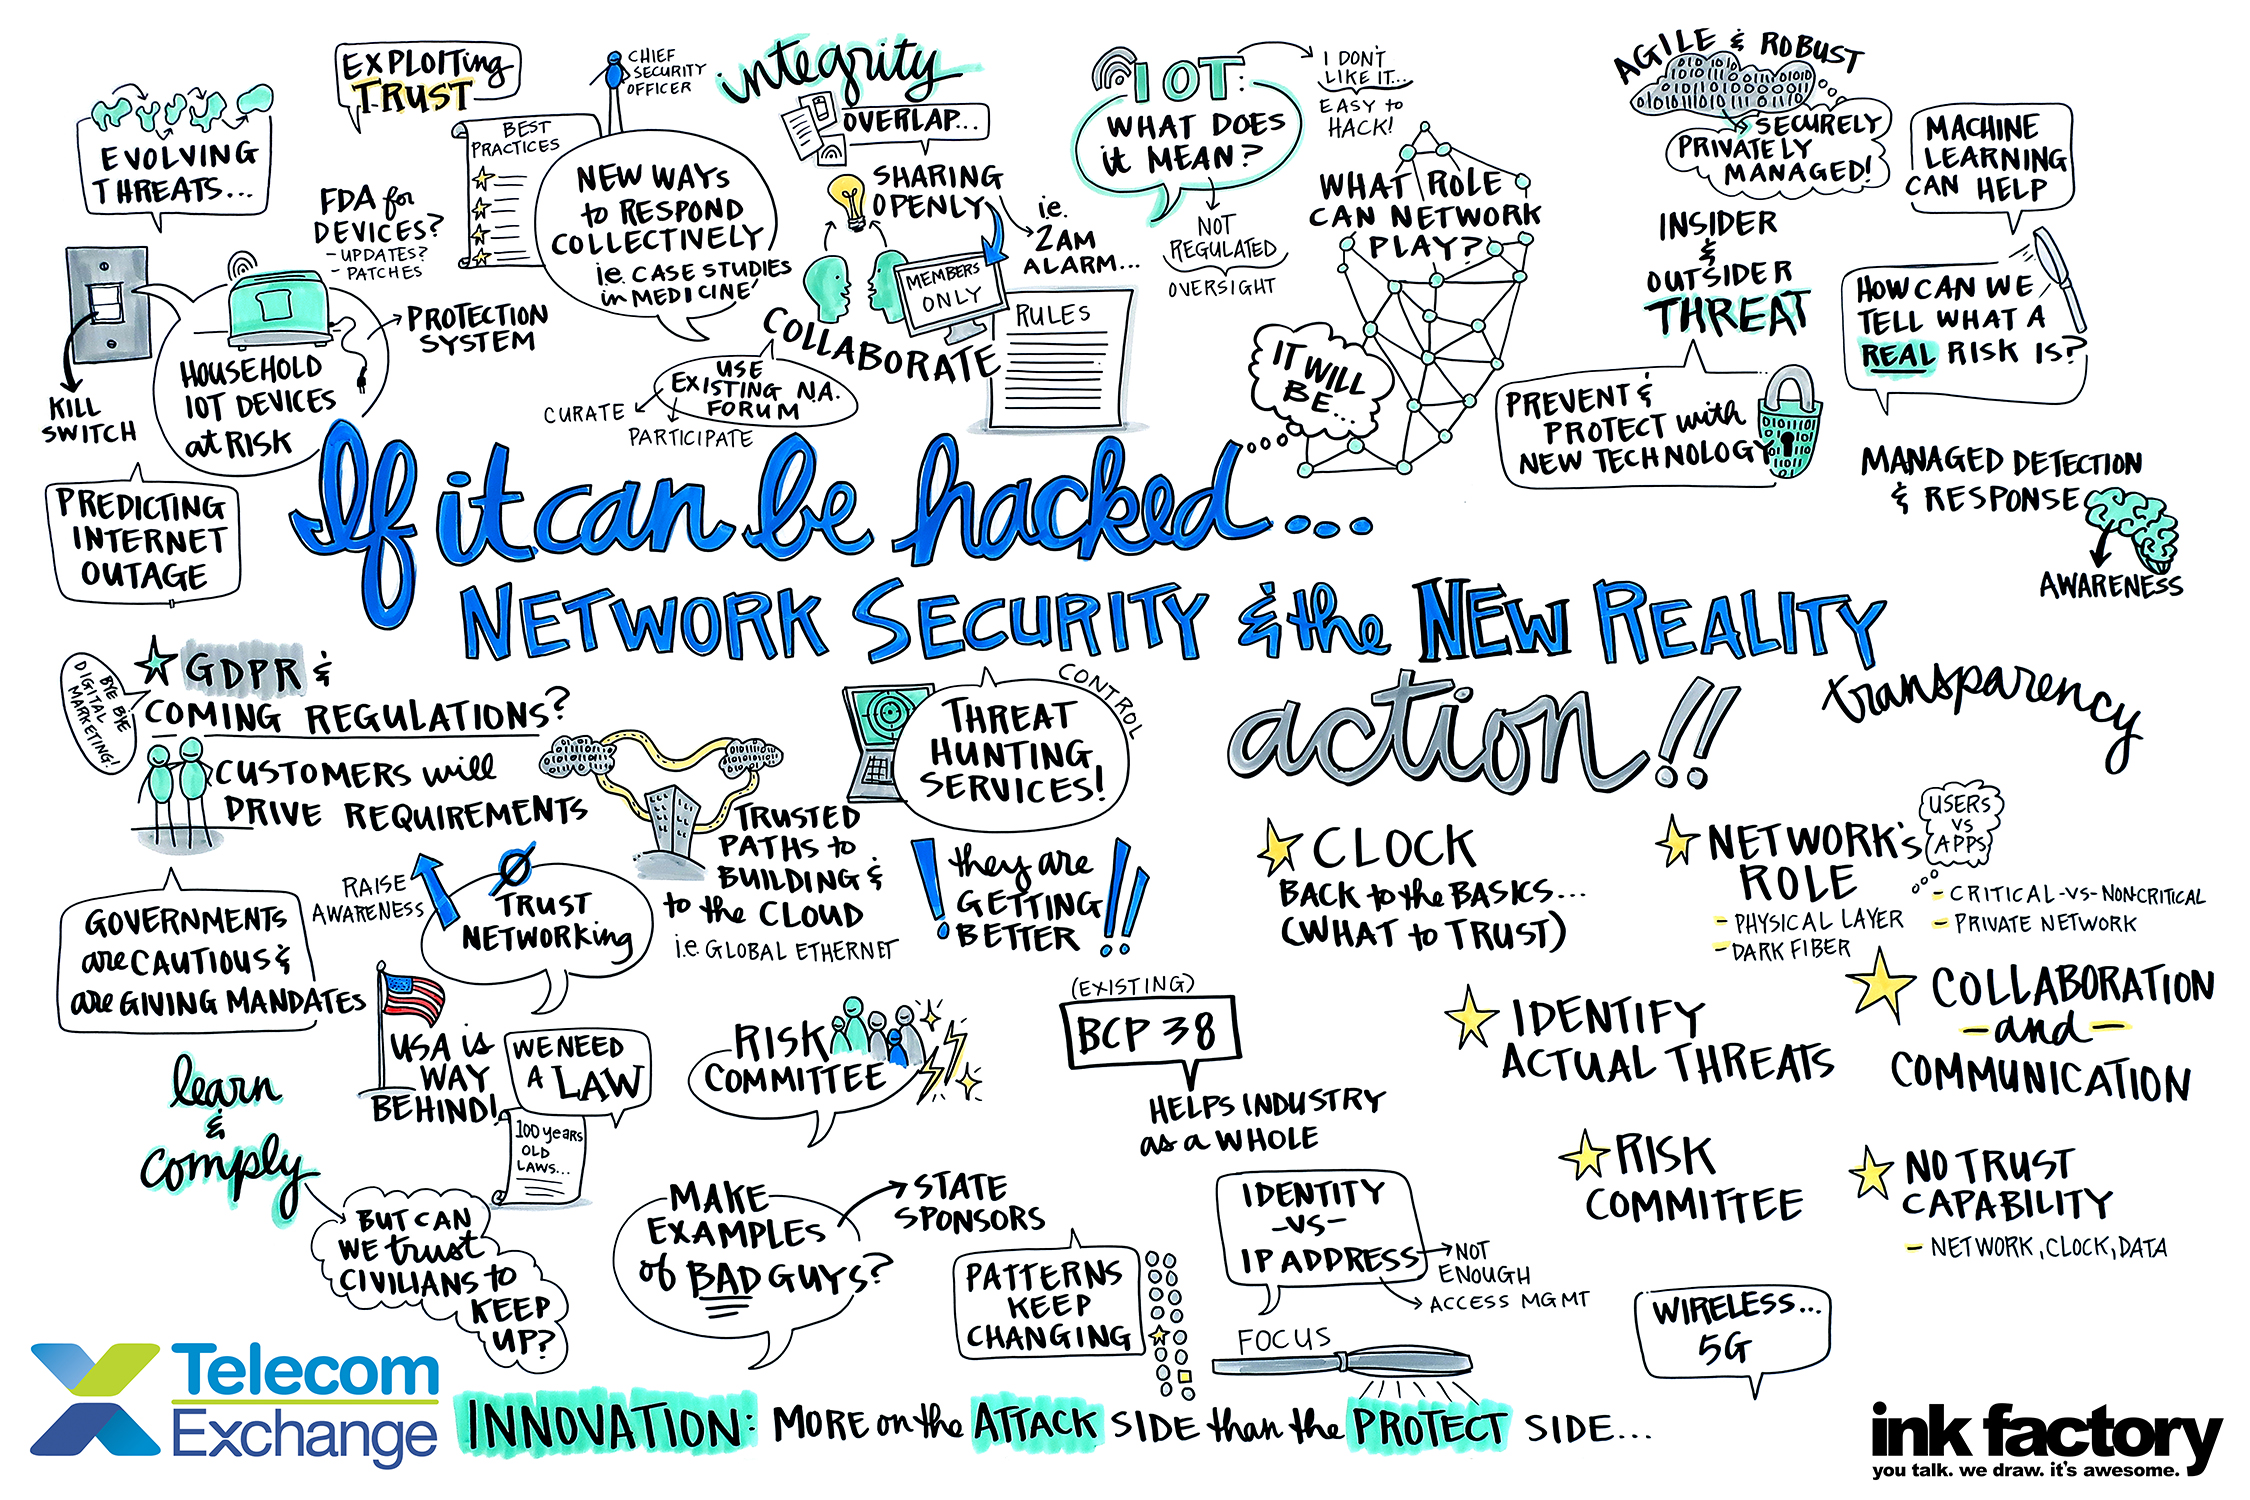 EVOLVING
THREATS...
EXPLOITING
TRUST
CHIEF
SECURITY
OFFICER
BEST
PRACTICES
FDA for
DEVICES?
- UPDATES?
- PATCHES
NEW WAYS
to RESPOND
COLLECTIVELY
i.e. CASE STUDIES
in MEDICINE'
integrity
OVERLAP...
SHARING
OPENLY
i.e.
2AM
ALARM...
MEMBERS
ONLY
COLLABORATE
RULES
USE
EXISTING N.A.
FORUM
CURATE
PARTICIPATE
KILL
SWITCH
HOUSEHOLD
IOT DEVICES
at RISK
PROTECTION
SYSTEM
PREDICTING
INTERNET
OUTAGE
IOT:
WHAT DOES
it MEAN?
I DON'T
LIKE IT...
EASY to
HACK!
NOT
REGULATED
OVERSIGHT
WHAT ROLE
CAN NETWORK
PLAY?
IT WILL
BE...
AGILE & ROBUST
SECURELY
PRIVATELY
MANAGED!
MACHINE
LEARNING
CAN HELP
INSIDER
&
OUTSIDER
THREAT
HOW CAN WE
TELL WHAT A
REAL RISK IS?
PREVENT &
PROTECT with
NEW TECHNOLOGY
MANAGED DETECTION
& RESPONSE
AWARENESS
If it can be hacked...
NETWORK SECURITY & the NEW REALITY
BYE BYE
DIGITAL
MARKETING!
GDPR &
COMING REGULATIONS?
CUSTOMERS will
DRIVE REQUIREMENTS
TRUSTED
PATHS to
BUILDING &
to the CLOUD
i.e. GLOBAL ETHERNET
THREAT
HUNTING
SERVICES!
CONTROL
they are
GETTING
BETTER
GOVERNMENTS
are CAUTIOUS &
are GIVING MANDATES
RAISE
AWARENESS
Ø
TRUST
NETWORKing
USA is
WAY
BEHIND!
WE NEED
A LAW
100 years
OLD
LAWS...
learn
&
comply
BUT CAN
WE trust
CIVILIANS to
KEEP
UP?
RISK
COMMITTEE
MAKE
EXAMPLES
of BAD GUYS?
STATE
SPONSORS
(EXISTING)
BCP 38
HELPS INDUSTRY
as a WHOLE
PATTERNS
KEEP
CHANGING
IDENTITY
-VS-
IP ADDRESS
NOT
ENOUGH
ACCESS MGMT
FOCUS
action!!
transparency
CLOCK
BACK to the BASICS...
(WHAT to TRUST)
NETWORK'S
ROLE
- PHYSICAL LAYER
- DARK FIBER
USERS
VS
APPS
- CRITICAL-VS-NONCRITICAL
- PRIVATE NETWORK
IDENTIFY
ACTUAL THREATS
COLLABORATION
- and -
COMMUNICATION
RISK
COMMITTEE
NO TRUST
CAPABILITY
- NETWORK, CLOCK, DATA
WIRELESS...
5G
Telecom
Exchange
INNOVATION: MORE on the ATTACK SIDE than the PROTECT SIDE...
ink factory
you talk. we draw. it's awesome.